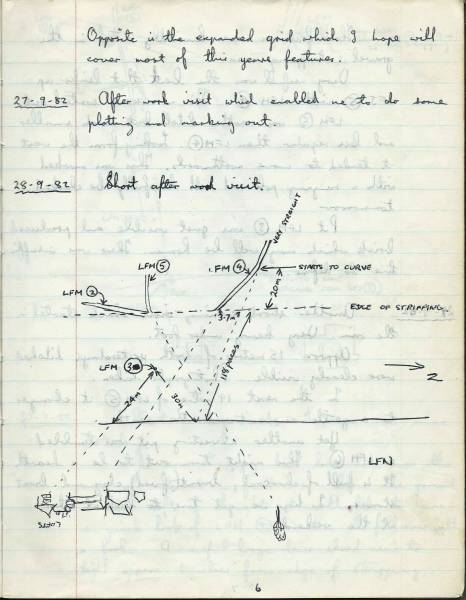 Opposite is the expanded grid which I hope will
cover most of this years features.
27-9-82 After work visit which enabled me to do some
plotting and marking out.
28-9-82 Short after work visit.
VERY STRAIGHT
LFM 5
LFM 4
STARTS TO CURVE
LFM 2
20m
3.7m
EDGE OF STRIPPING
118 paces
LFM 3
N
24m
30m
LFM
LOFTS
6